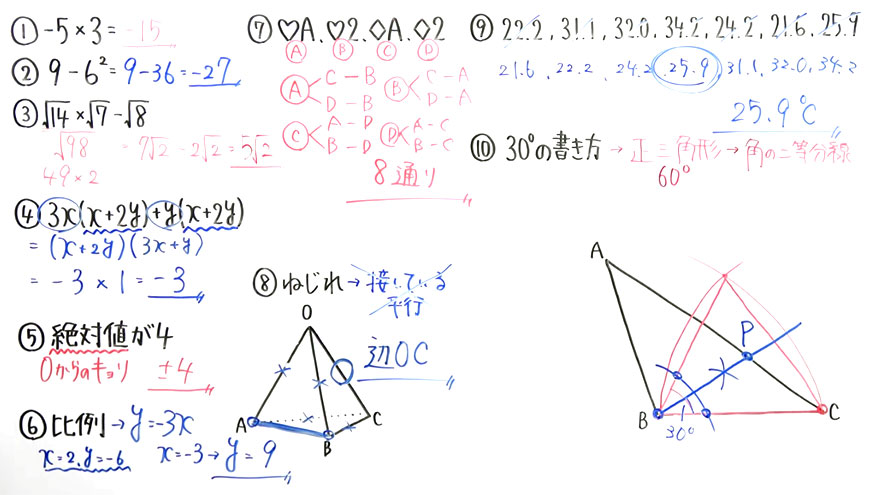 ① -5×3=-15
② 9-6²=9-36=-27
③ √14×√7-√8
√98 = 7√2-2√2=5√2
49×2
④ 3x(x+2y)+y(x+2y)
=(x+2y)(3x+y)
=-3×1=-3
⑤ 絶対値が4
0からのキョリ ±4
⑥ 比例→y=-3x
x=2,y=-6 x=-3→y=9
⑦ ♡A、♡2、◇A、◇2
Ⓐ Ⓑ Ⓒ Ⓓ
Ⓐ C-B Ⓑ C-A
D-B D-A
Ⓒ A-D Ⓓ A-C
B-D B-C
8通り
⑧ ねじれ→接している
平行
辺OC
O
A
B
C
⑨ 22.2, 31.1, 32.0, 34.2, 24.2, 21.6, 25.9
21.6, 22.2, 24.2, 25.9, 31.1, 32.0, 34.2
25.9℃
⑩ 30°の書き方→正三角形→角の二等分線
60°
A
P
B
30°
C